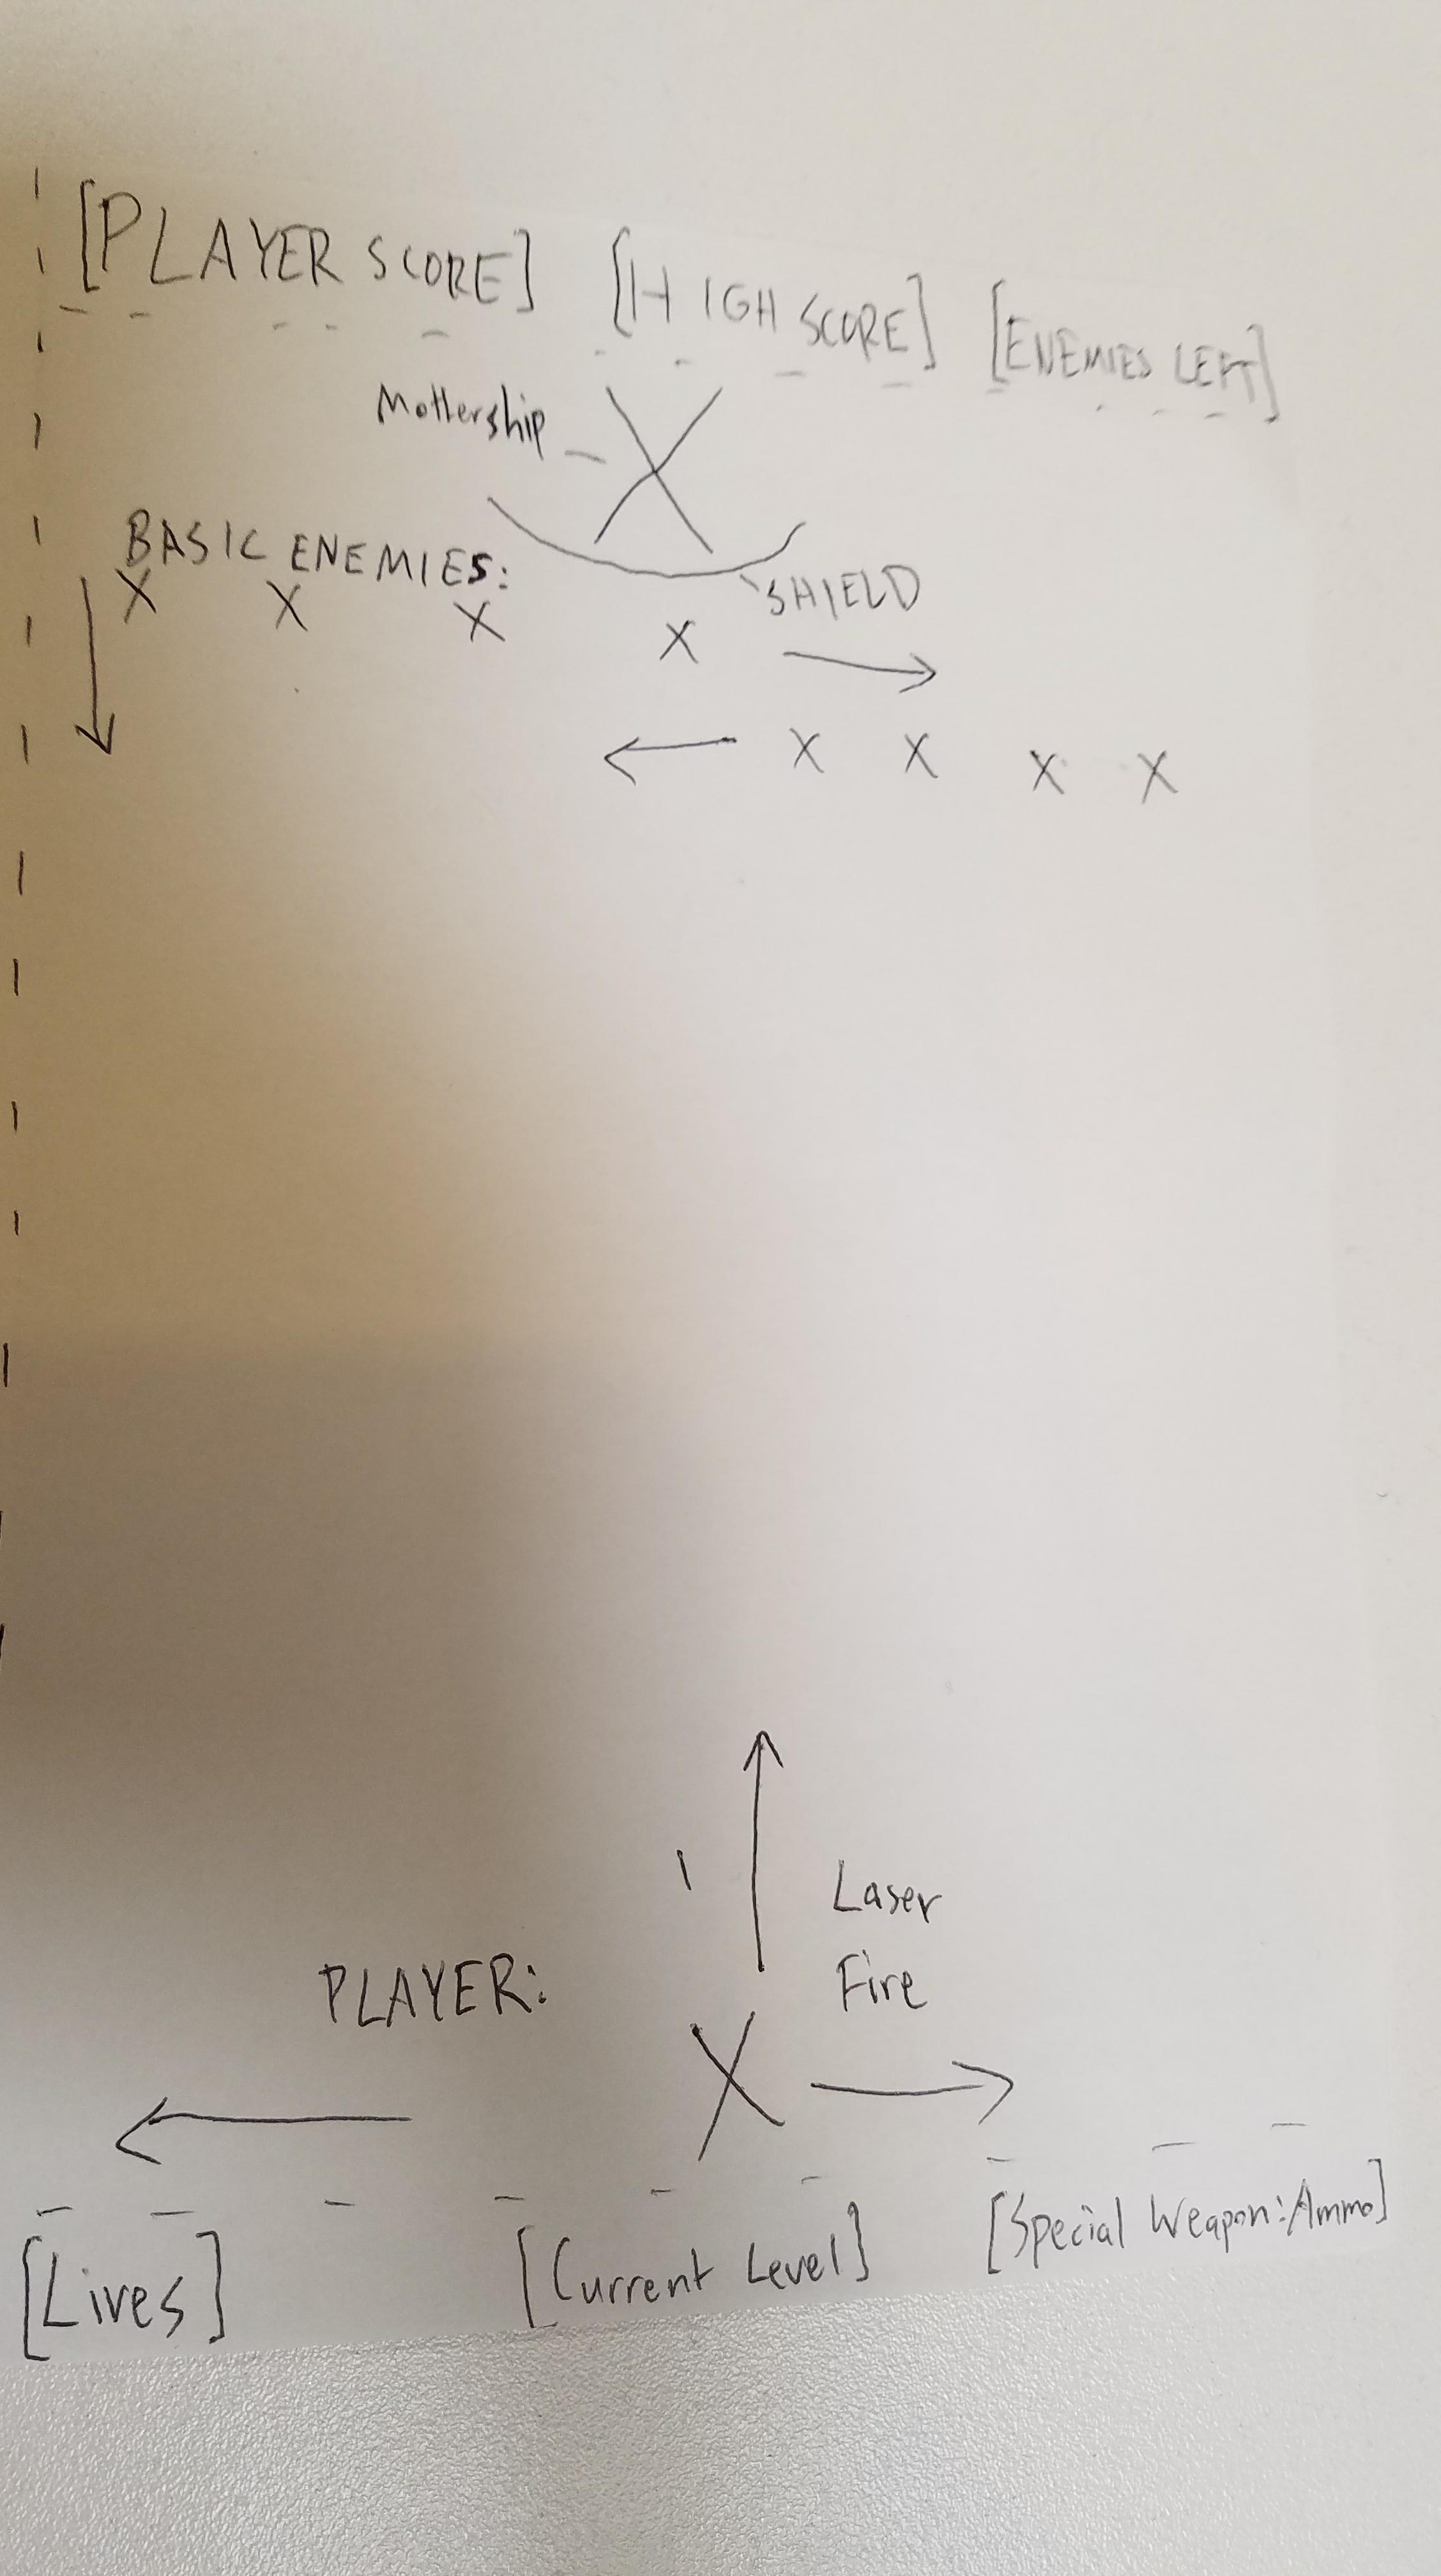 [PLAYER SCORE] [HIGH SCORE] [ENEMIES LEFT]
Mothership
BASIC ENEMIES:
SHIELD
X X X X
X X X X
Laser
Fire
PLAYER:
X
[Lives] [Current Level] [Special Weapon:Ammo]